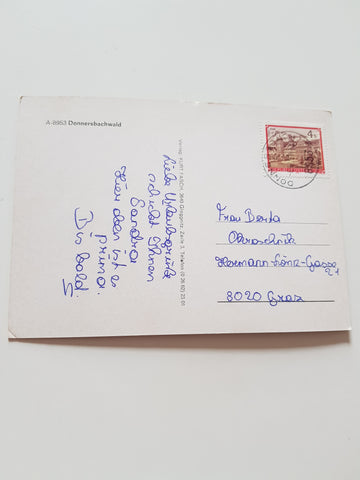 A-8953 Donnersbachwald
Liebe Urlaubsgrüße
schickt Ihnen
Sandra
Hier oben ist es
prima.
Bis bald.
S
4
Frau Berta
Hermann-Löns-Gasse
21
8020 Graz